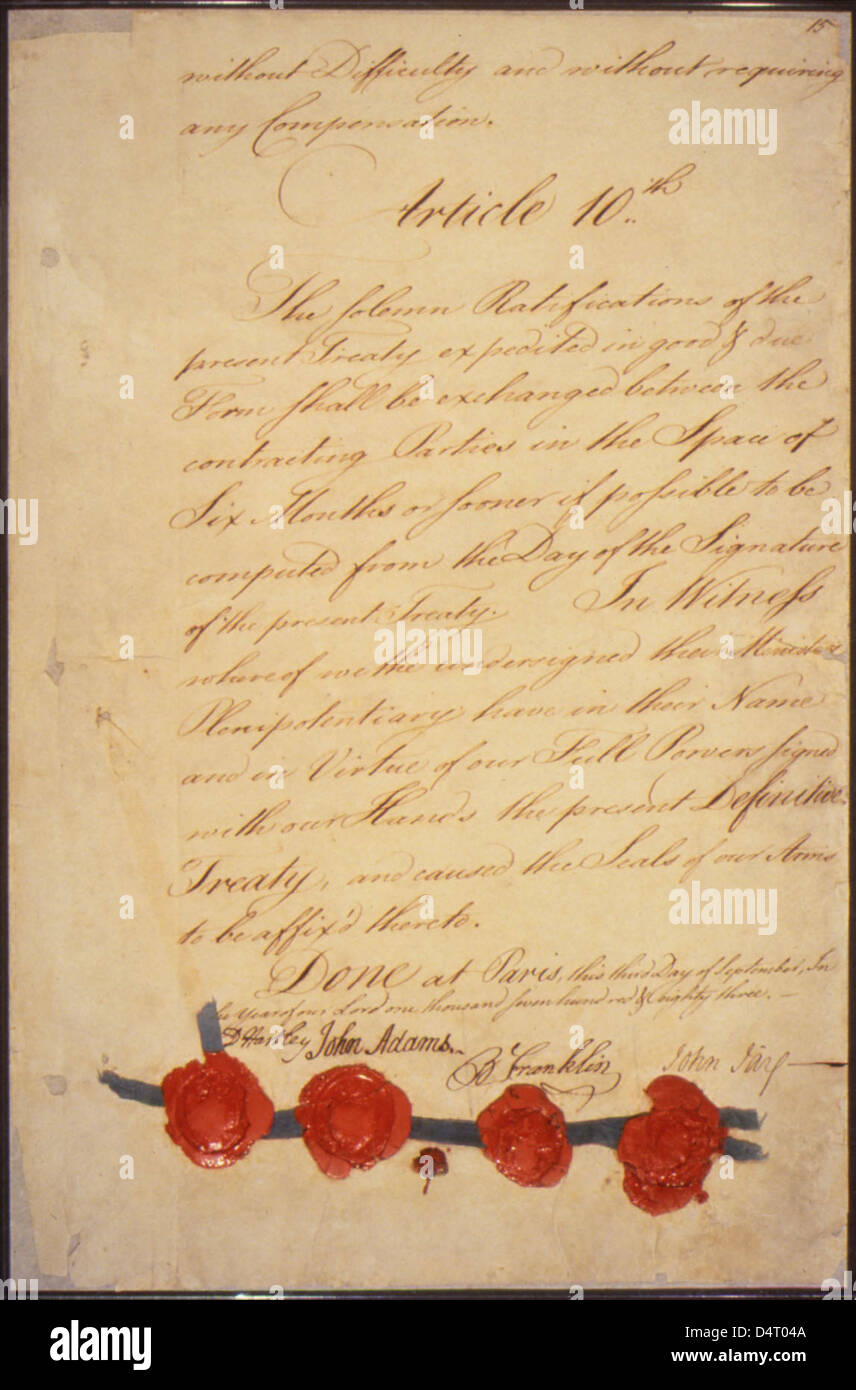 15
without Difficulty and without requiring
any Compensation.
Article 10.th
The solemn Ratifications of the
present Treaty expedited in good & due
Form shall be exchanged between the
contracting Parties in the Space of
Six Months or sooner if possible to be
computed from the Day of the Signature
of the present Treaty. In Witness
whereof we the undersigned their Ministers
Plenipotentiary have in their Name
and in Virtue of our Full Powers signed
with our Hands the present Definitive
Treaty, and caused the Seals of our Arms
to be affix'd thereto.
Done at Paris, this third Day of September, In
the Year of our Lord one thousand seven hundred & eighty three.
D Hartley John Adams. B Franklin John Jay
alamy
alamy
alamy
alamy
alamy
Image ID: D4T04A
www.alamy.com